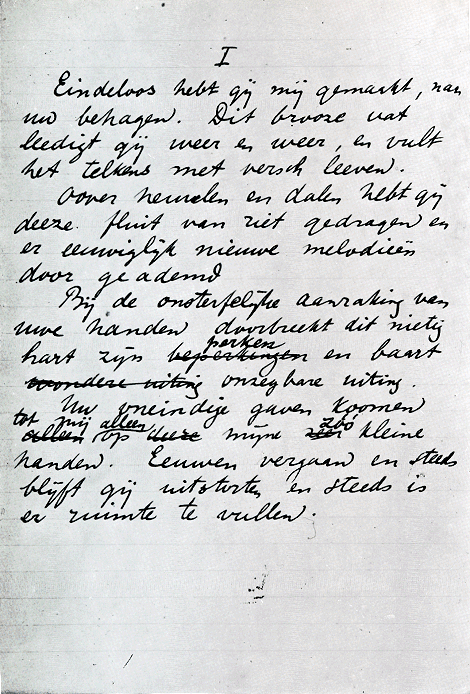 I
Eindeloos hebt gij mij gemaakt, naar
uw behagen. Dit brooze vat
leedigt gij weer en weer, en vult
het telkens met versch leeven.
Oover heuvelen en dalen hebt gij
deeze fluit van riet gedragen en
er eeuwiglijk nieuwe melodieën
door geademd
Bij de onsterfelijke aanraking van
uwe handen doorbreekt dit nietig
perken
hart zijn beperkingen en baart
wondere uiting onzegbare uiting.
Uw oneindige gaven koomen
tot mij alleen zoo
alleen op deeze mijne kleine
handen. Eeuwen vergaan en steeds
blijft gij uitstorten en steeds is
er ruimte te vullen.